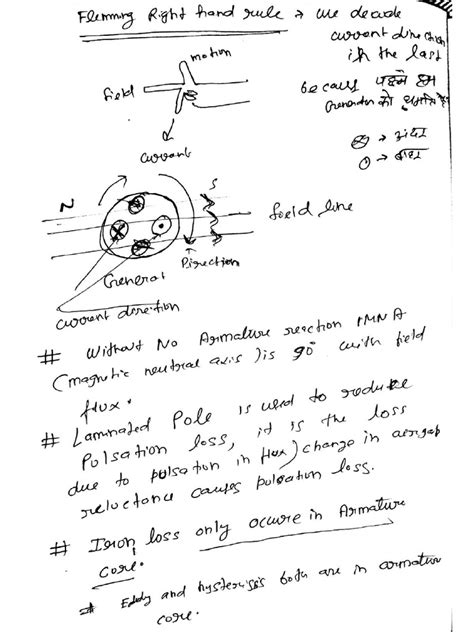 Flemming Right hand rule → we decade
current direction
in the last
because पहले हम
Generator को
motion
field
current
⊗ → अंदर
⊙ → बाहर
N
S
field line
Direction
General
current direction
# Without No Armature reaction (MNA
(magnetic neutral axis) is 90° with field
flux.
# Laminated Pole is used to reduce
Pulsation loss, it is the loss
due to pulsation in flux) change in airgap
reluctance causes pulsation loss.
# Iron loss only occure in Armature
core.
# Eddy and hysterisis both are in armature
core.